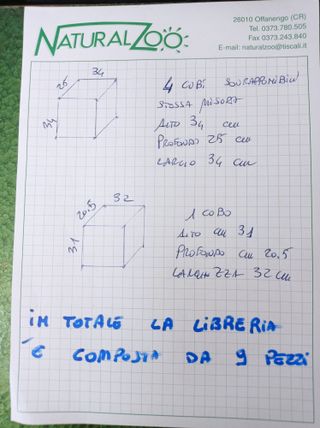 NATURALZOO
26010 Offanengo (CR)
Tel. 0373.780.505
Fax 0373.243.840
E-mail: naturalzoo@tiscali.it
34
25
34
4 CUBI SOVRAPPONIBILI
STESSA MISURA
ALTO 34 cm
PROFONDO 25 cm
LARGO 34 cm
32
20.5
31
1 CUBO
ALTO cm 31
PROFONDO cm 20.5
LARGHEZZA 32 cm
iN TOTALE LA LiBRERiA
E' COMPOSTA DA 9 PEZZi